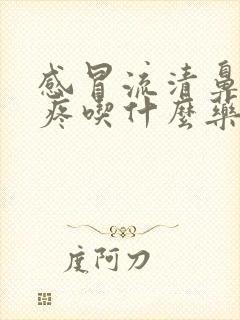 感冒流清鼻
疼喫什麼藥
度阿刀